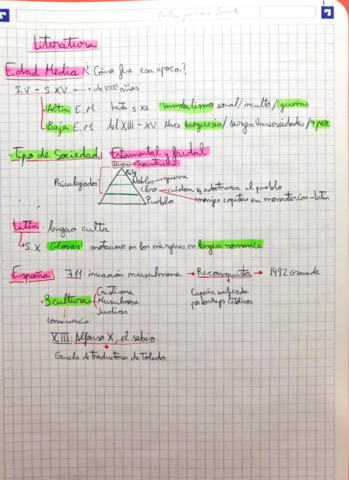 Literatura
Edad Media ¿Cómo fue esa época?
S. V - S XV + de 1000 años
Alta E.M hasta s XII Inmobilismo social/inculto/guerras
Baja E.M del XIII - XV Nace burgesía/surgen universidades/+ paz
Tipo de Sociedad: Estamental y feudal
Dios → teocentrismo
Rey
Privilegiados Nobles → guerra
Clero → cuidan y adoctrinan al pueblo
Pueblo monjes copistas en monasterios - latín
Latín: lengua culta
S.X Glosas anotaciones en los márgenes en lengua romance
España 711 invasión musulmana → Reconquista → 1492 Granada
3 culturas Cristiana España unificada
Musulmana por los Reyes Católicos
Judíos
Convivencia
XIII: Alfonso X, el sabio
Escuela de traductores de Toledo